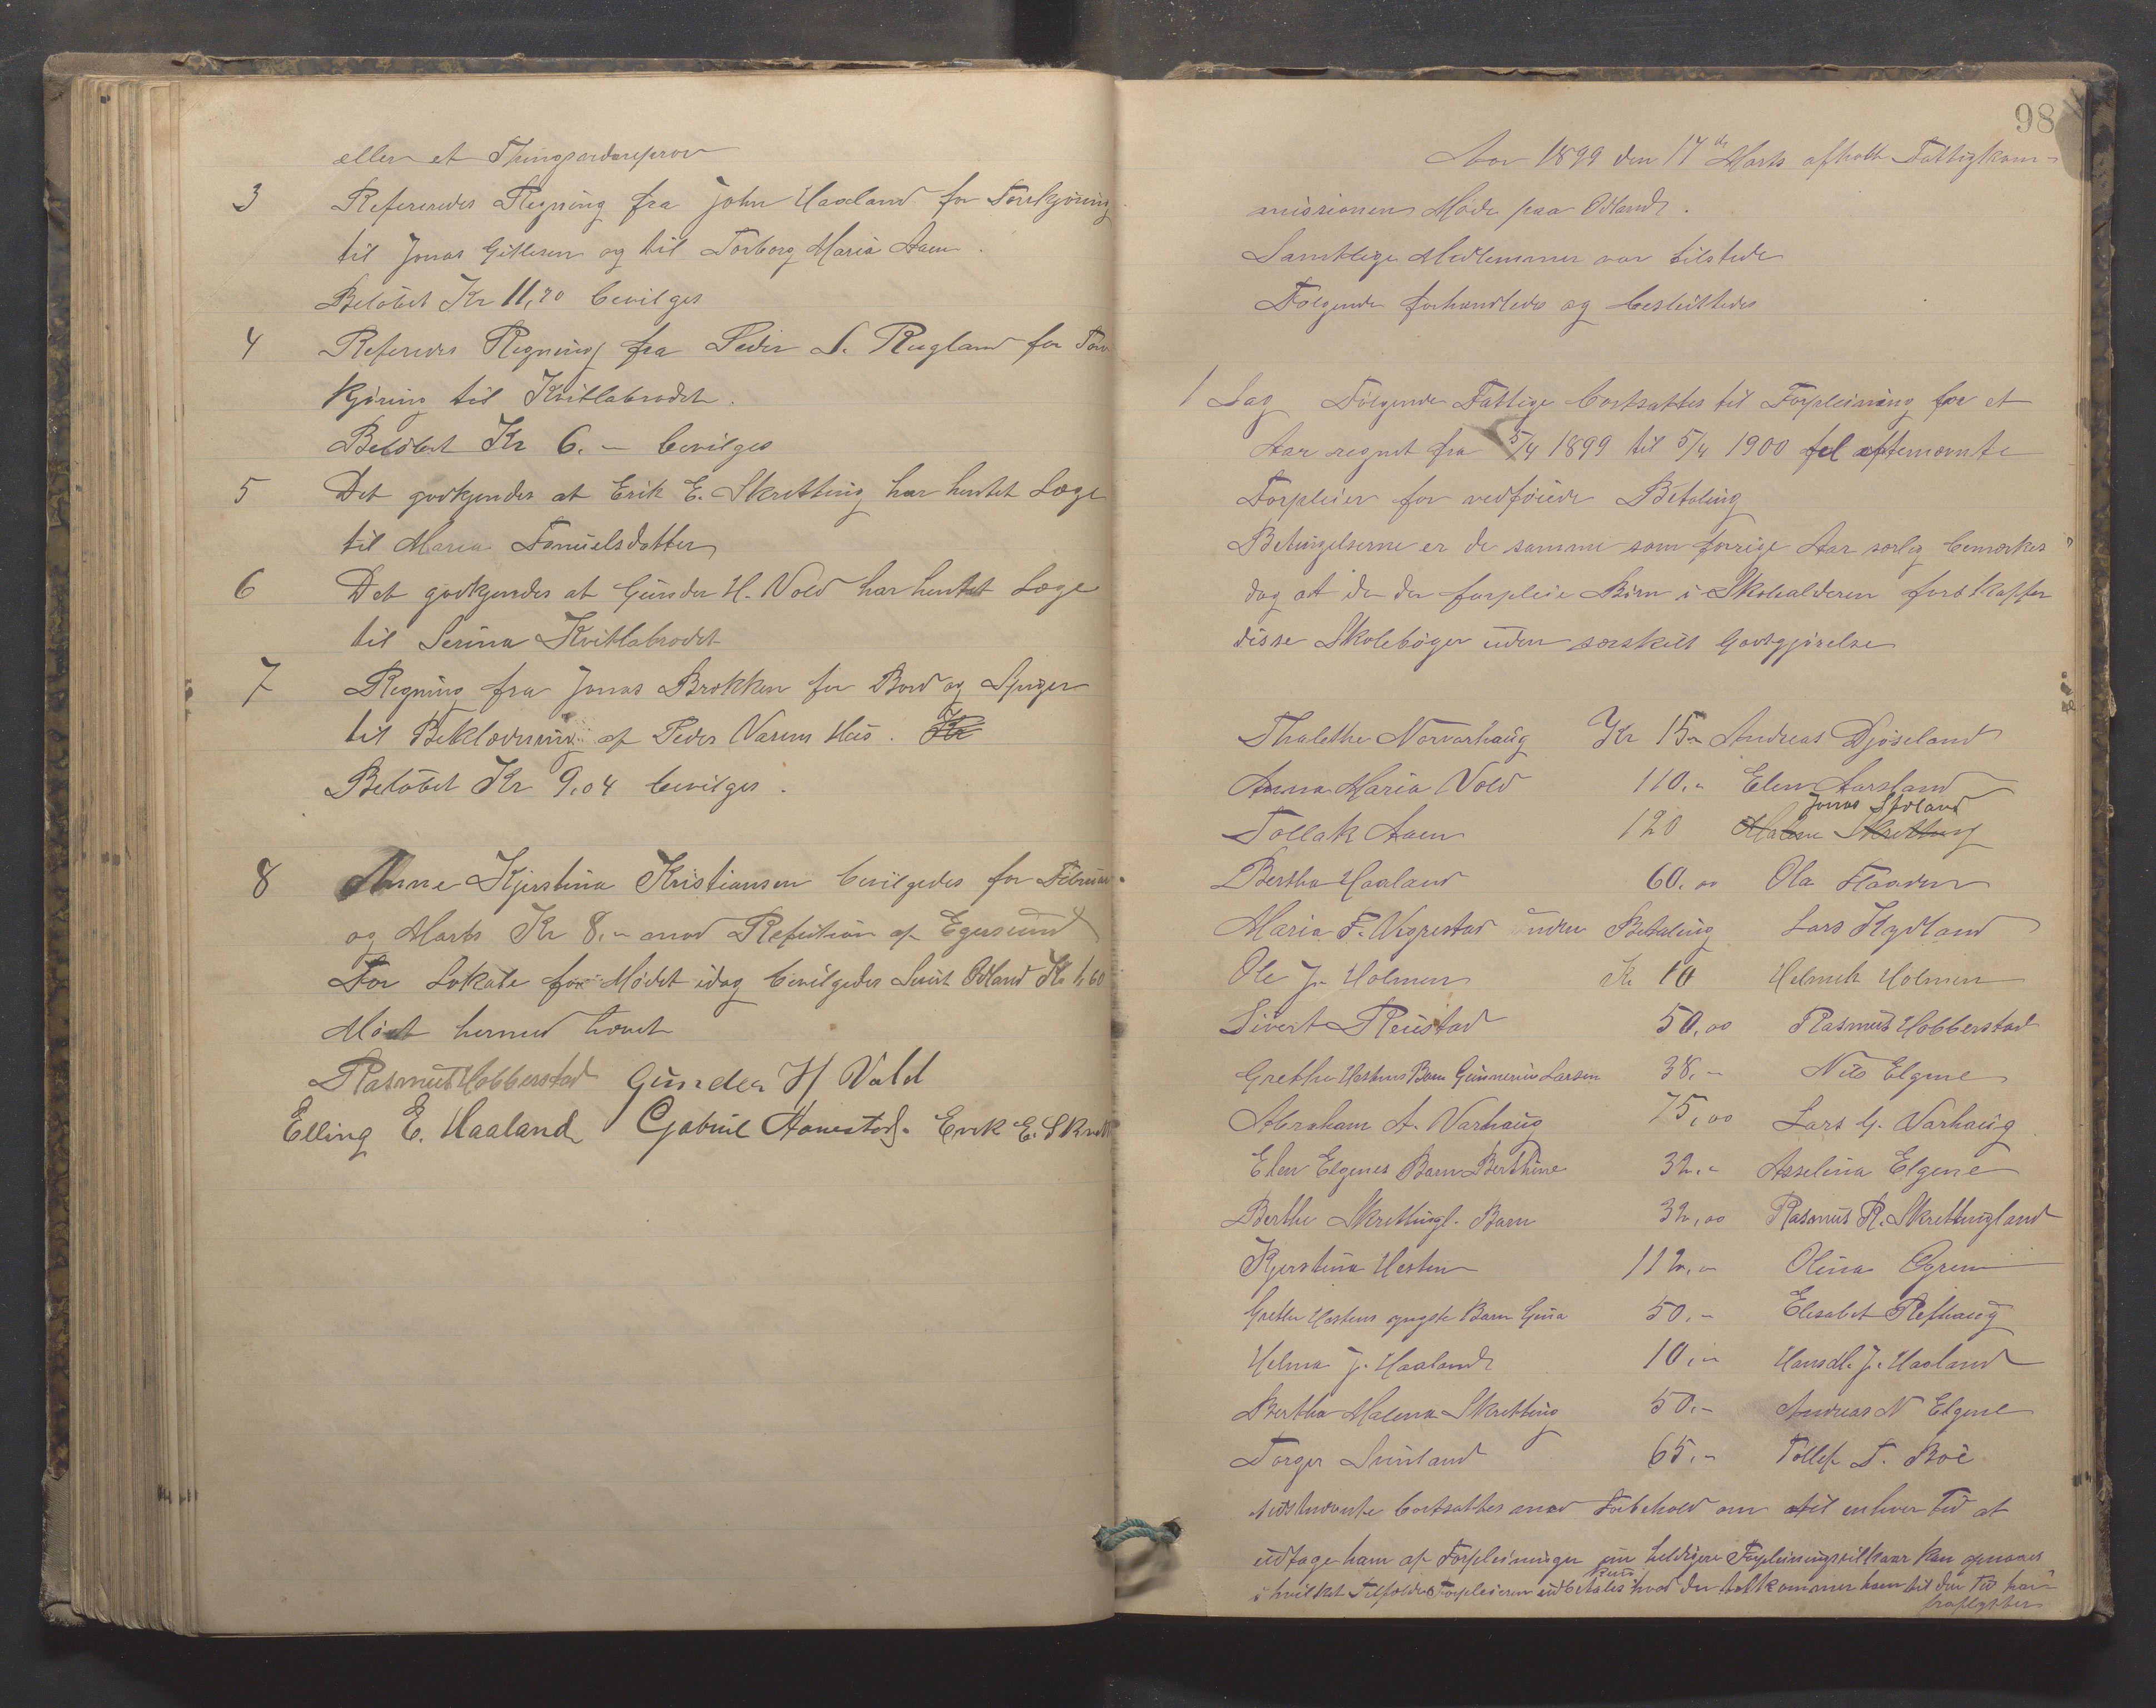 eller et
3 Refereredes Regning fra John Haaland for Torvkjøring
til Jonas Gitlesen og til Torborg Maria Aaen.
Beløbet Kr 11,20 bevilges
4 Refereredes Regning fra Peder S. Rugland for Torv
kjøring til Kvitlabrodet.
Beløbet Kr 6.- bevilges
5 Det godkjendes at Erik E. Skretting har hentet Læge
til Maria Samuelsdatter
6 Det godkjendes at Gunder H. Vold har hentet Læge
til Serina Kvitlabrodet
7 Regning fra Jonas Brokken for Bord og Spiger
til Beklædning af Peder Varens Hus. Kr
Beløbet Kr 9,04 bevilges.
8 Anne Kjerstina Kristiansen bevilgedes for Februar
og Marts Kr 8,- mod Refution af Egersund
For Lokale for Mødet idag bevilgedes Odland Kr 1,60
Mødet hermed hævet
Rasmus Hobberstad Gunder H Vold
Elling E. Haaland Gabriel Aanestad. Erik E. Skrett
98
Aar 1899 den 17de Marts afholdt Fattigkom-
missionen Møde paa Odland.
Samtlige Medlemmer var tilstede
Følgende forhandledes og besluttedes
1 Sag Følgende Fattige bortsattes til Forpleining for et
Aar regnet fra 5/4 1899 til 5/4 1900 til efternævnte
Forpleier for vedføiede Betaling
Betingelserne er de samme som forrige Aar særlig bemærkes
dog at de der forpleie Børn i Skolealderen forskaffer
disse Skolebøger uden særskilt Godtgjørelse
Thalethe Norvarhaug Kr 15- Andreas Djøseland
Anna Maria Vold 110.- Elen Aarsland
Jonas Stoland
Tollak Aaen 120 Malene Skretting
Bertha Haaland 60.00 Ola Floaden
Maria F. Vigrestad uden Betaling Lars Kydland
Ole J. Holmen Kr 10 Helmik Holmen
Sivert Reustad 50,00 Rasmus Hobberstad
Grethe Hestnes Barn Gunnerius Larsen 38.- Nils Elgene
Abraham A. Varhaug 75,00 Lars G. Varhaug
Elen Elgenes Barn Berthine 32.- Asselina Elgene
Berthe Skrettingl. Barn 32,00 Rasmus R. Skrettingland
Kjerstina Hesten 112,00 Olina Ogren
Grethe Hestens yngste Barn Gina 50.- Elisabet Refhaug
Helma J. Haaland 10,- J. Haaland
Bertha Malena Skretting 50.- Andreas N Elgene
Torger Suniland 65.- Tollef T. Boë
Sidstnævnte bortsattes med Forbehold om til enhver Tid at
udtage ham af Forpleiningen om heldigere Forpleiningsvilkaar kan opnaaes
kun
i hvilket Tilfælde Forpleieren udbetales hvad der tilkommer ham til den Tid han
fraflytter